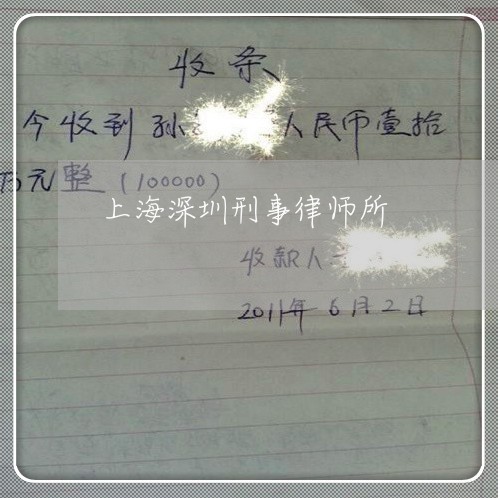 收条
今收到孙 人民币壹拾
万元整(100000)
上海深圳刑事律师所
收款人
2011年6月2日